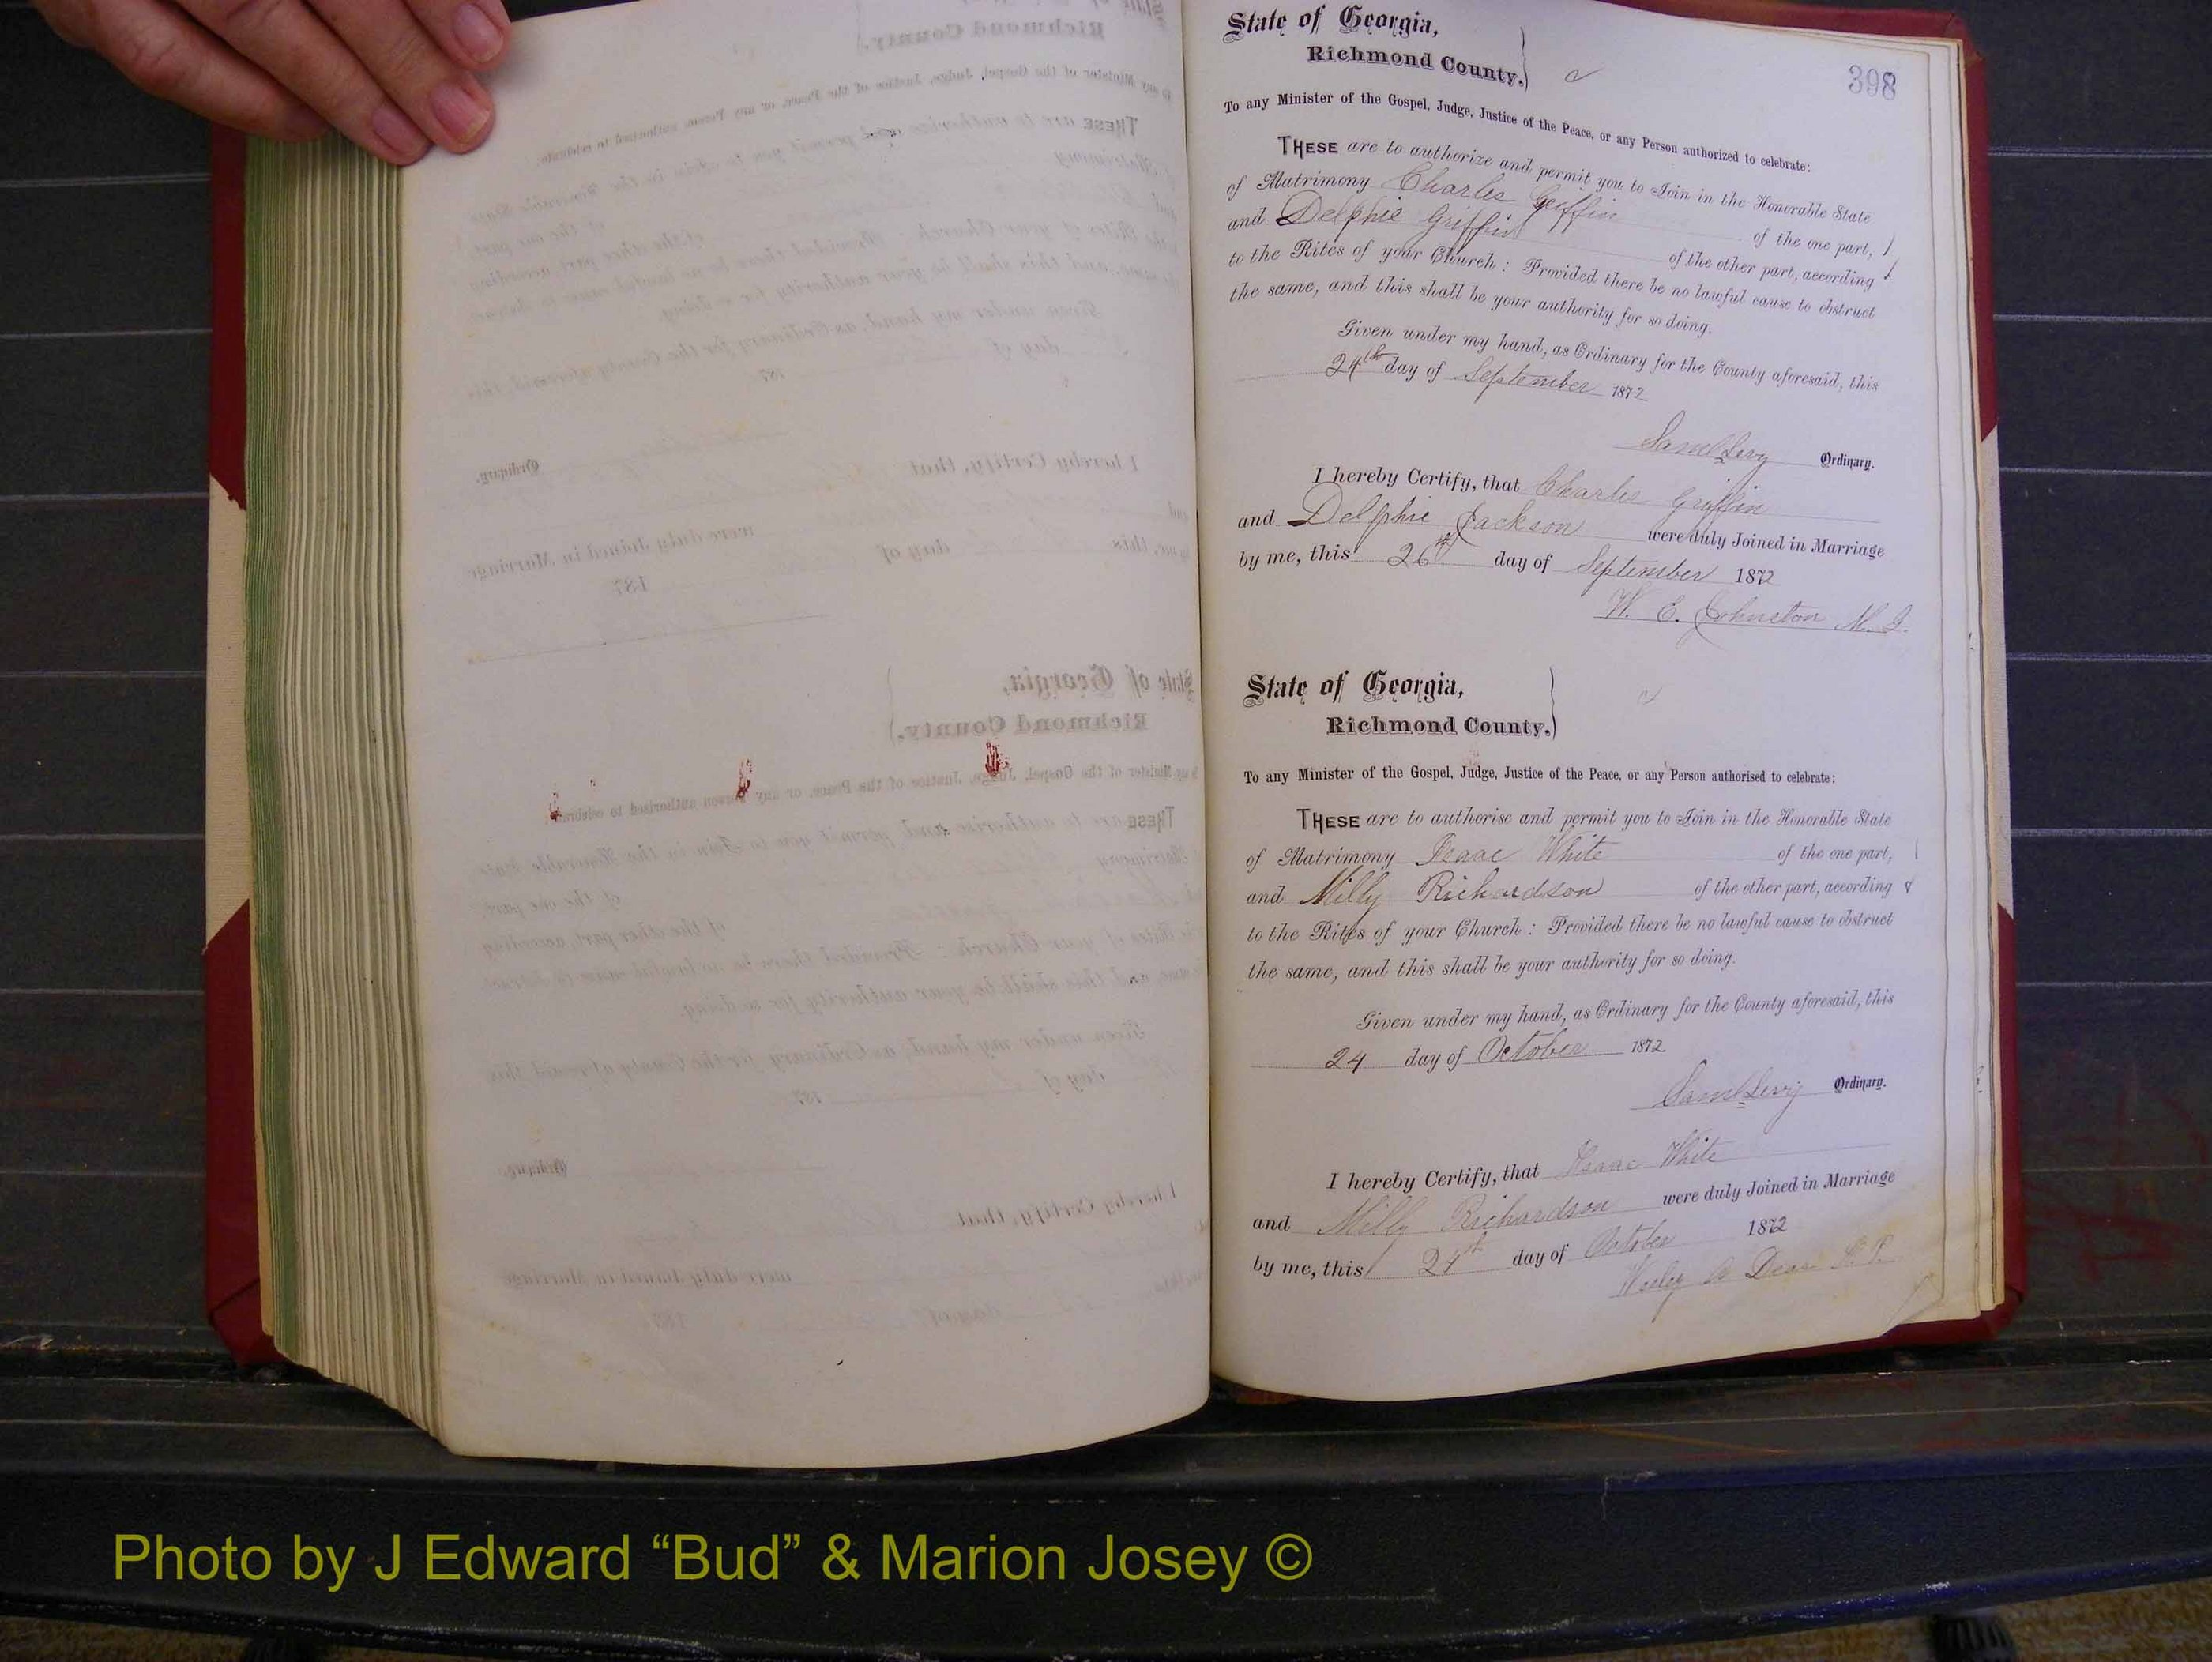 398
State of Georgia,
Richmond County.
To any Minister of the Gospel, Judge, Justice of the Peace, or any Person authorized to celebrate:
THESE are to authorize and permit you to Join in the Honorable State
of Matrimony Charles Griffin of the one part,
and Delphie Griffin of the other part, according
to the Rites of your Church: Provided there be no lawful cause to obstruct
the same, and this shall be your authority for so doing.
Given under my hand, as Ordinary for the County aforesaid, this
24th day of September 1872
Saml Levy Ordinary.
I hereby Certify, that Charles Griffin
and Delphie Jackson were duly Joined in Marriage
by me, this 26th day of September 1872
W. E. Johnston M. G.
State of Georgia,
Richmond County.
To any Minister of the Gospel, Judge, Justice of the Peace, or any Person authorised to celebrate:
THESE are to authorise and permit you to Join in the Honorable State
of Matrimony Isaac White of the one part,
and Milly Richardson of the other part, according
to the Rites of your Church: Provided there be no lawful cause to obstruct
the same, and this shall be your authority for so doing.
Given under my hand, as Ordinary for the County aforesaid, this
24 day of October 1872
Saml Levy Ordinary.
I hereby Certify, that Isaac White
and Milly Richardson were duly Joined in Marriage
by me, this 24th day of October 1872
Photo by J Edward “Bud” & Marion Josey ©